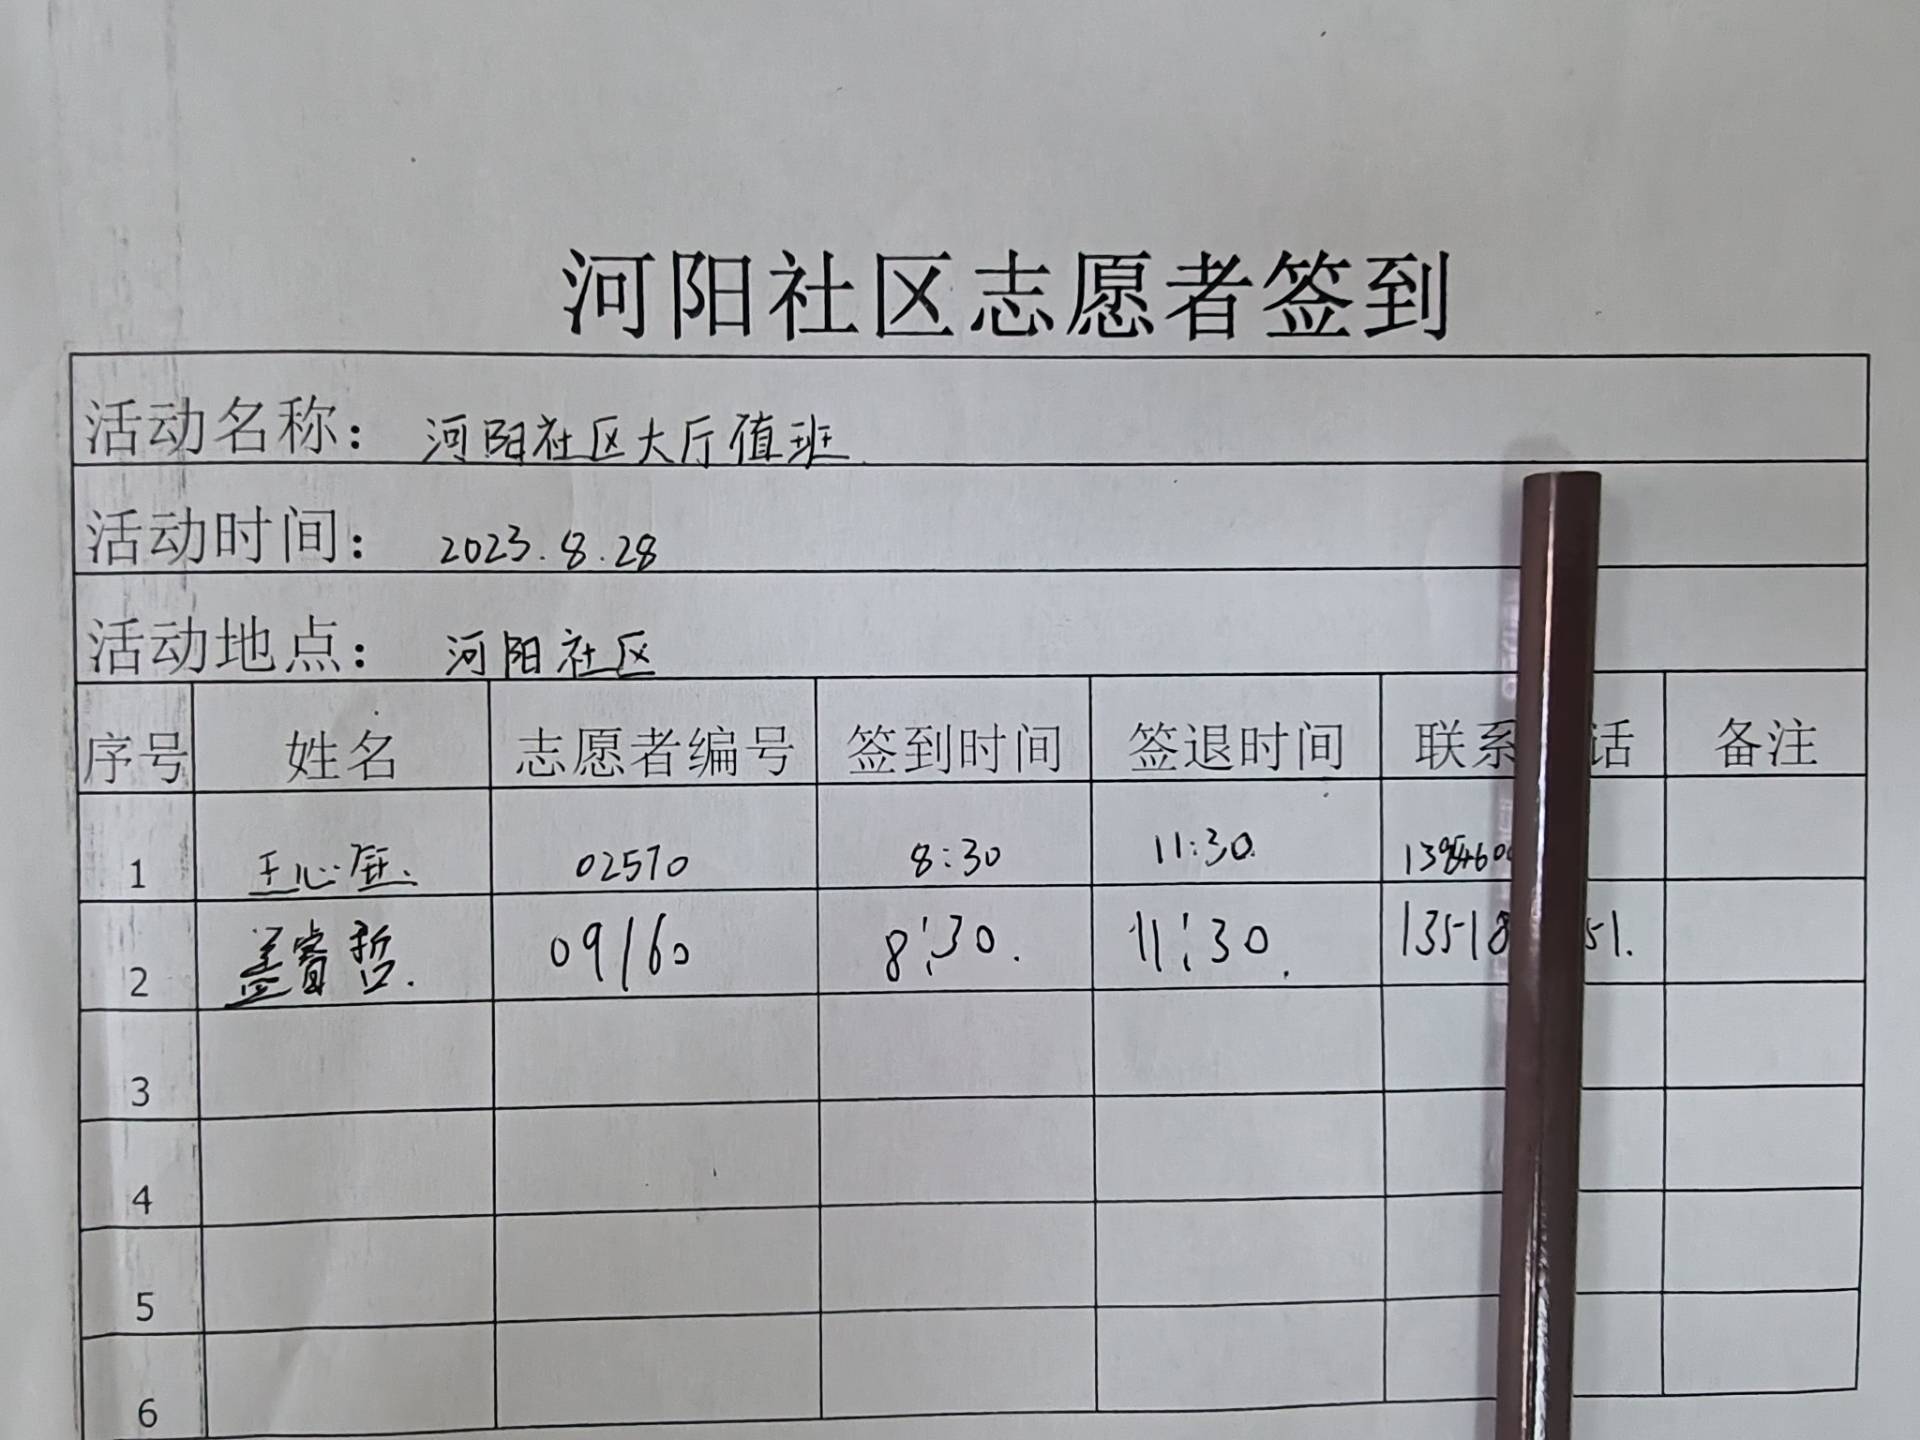 河阳社区志愿者签到
活动名称： 河阳社区大厅值班
活动时间： 2023.8.28
活动地点： 河阳社区
序号 姓名 志愿者编号 签到时间 签退时间 联系 话 备注
1 王心钰. 02570 8:30 11:30.
2 盖睿哲. 09160 8:30. 11:30. 13518 51.
3
4
5
6